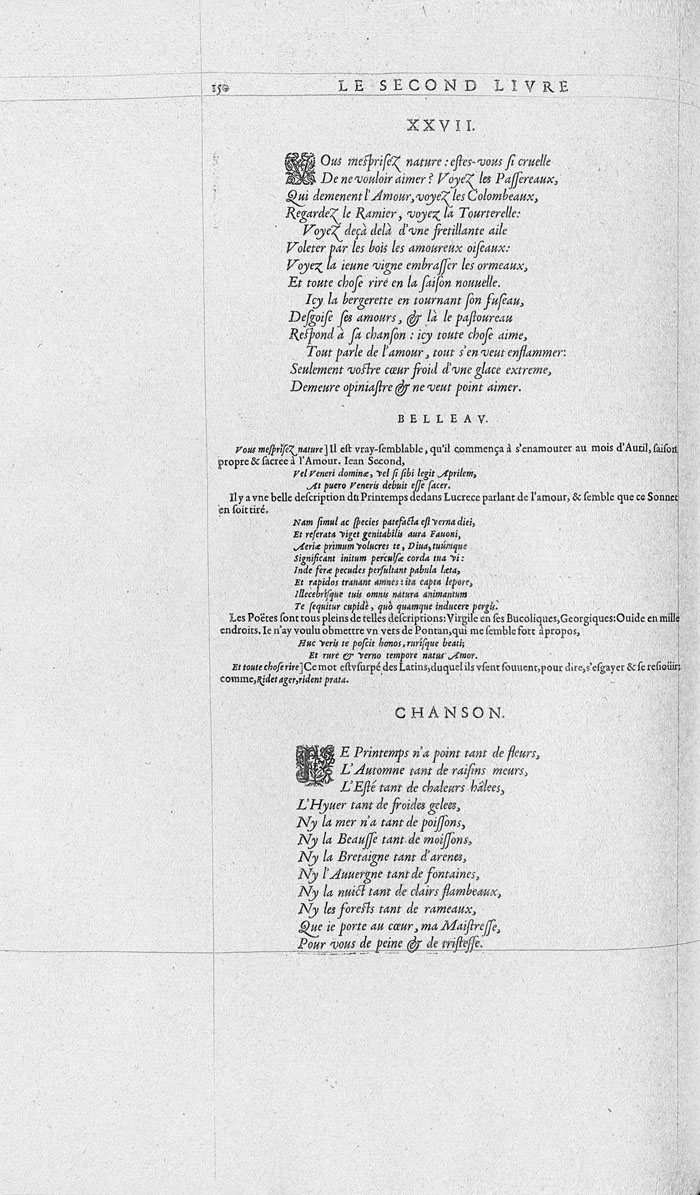 150 LE SECOND LIVRE
XXVII.
VOus mesprisez nature : estes-vous si cruelle
De ne vouloir aimer ? Voyez les Passereaux,
Qui demenent l'Amour, voyez les Colombeaux,
Regardez le Ramier, voyez la Tourterelle:
Voyez deçà delà d'vne fretillante aile
Voleter par les bois les amoureux oiseaux:
Voyez la ieune vigne embrasser les ormeaux,
Et toute chose rire en la saison nouuelle.
Icy la bergerette en tournant son fuseau,
Desgoise ses amours, & là le pastoureau
Respond à sa chanson : icy toute chose aime,
Tout parle de l'amour, tout s'en veut enflammer:
Seulement vostre cœur froid d'vne glace extreme,
Demeure opiniastre & ne veut point aimer.
BELLEAV.
Vous mesprisez nature] Il est vray-semblable, qu'il commença à s'enamourer au mois d'Auril, saison
propre & sacree à l'Amour. Iean Second,
Vel Veneri dominæ, vel si sibi legit Aprilem,
At puero Veneris debuit esse sacer.
Il y a vne belle description du Printemps dedans Lucrece parlant de l'amour, & semble que ce Sonnet
en soit tiré.
Nam simul ac species patefacta est verna diei,
Et reserata viget genitabilis aura Fauoni,
Aeriæ primum volucres te, Diua, tuúmque
Significant initum perculsæ corda tua vi:
Inde feræ pecudes persultant pabula læta,
Et rapidos tranant amnes: ita capta lepore,
Illecebrisque tuis omnis natura animantum
Te sequitur cupidè, quò quamque inducere pergis.
Les Poëtes sont tous pleins de telles descriptions: Virgile en ses Bucoliques, Georgiques: Ouide en mille
endroits. Ie n'ay voulu obmettre vn vers de Pontan, qui me semble fort à propos,
Huc veris te poscit honos, rurisque beati;
Et rure & verno tempore natus Amor.
Et toute chose rire] Ce mot est vsurpé des Latins, duquel ils vsent souuent, pour dire, s'esgayer & se resiouir:
comme, Ridet ager, rident prata.
CHANSON.
LE Printemps n'a point tant de fleurs,
L'Automne tant de raisins meurs,
L'Esté tant de chaleurs hâlees,
L'Hyuer tant de froides gelees,
Ny la mer n'a tant de poissons,
Ny la Beausse tant de moissons,
Ny la Bretaigne tant d'arenes,
Ny l'Auuergne tant de fontaines,
Ny la nuict tant de clairs flambeaux,
Ny les forests tant de rameaux,
Que ie porte au cœur, ma Maistresse,
Pour vous de peine & de tristesse.